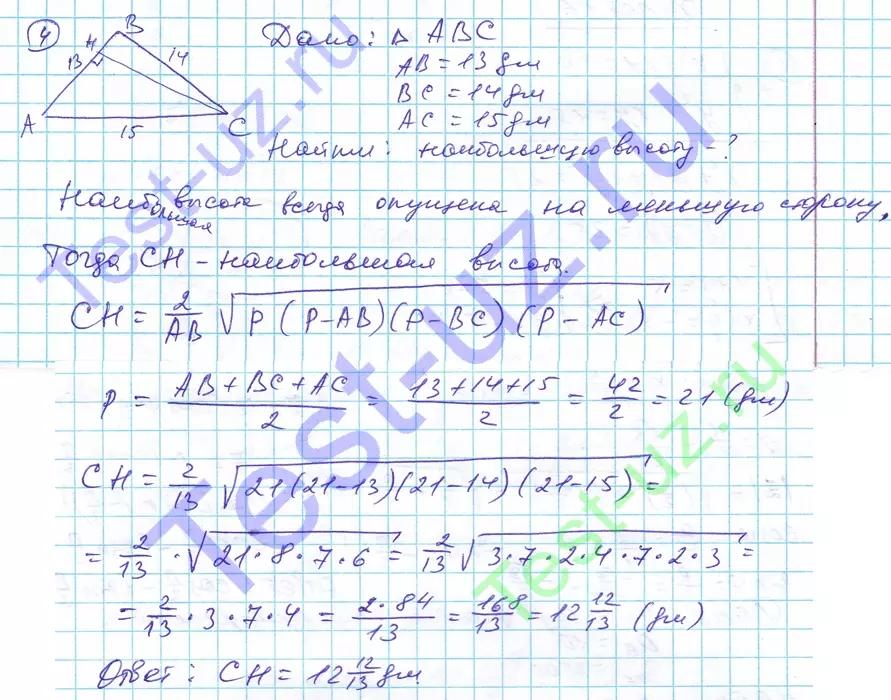 4
B
H
13
14
A
15
C
Дано: Δ ABC
AB = 13 дм
BC = 14 дм
AC = 15 дм
Найти: наибольшую высоту - ?
Наибольшая высота всегда опущена на меньшую сторону,
Тогда CH - наибольшая высота.
CH = 2/AB √(p (p-AB)(p-BC)(p-AC))
p = (AB+BC+AC)/2 = (13+14+15)/2 = 42/2 = 21 (дм)
CH = 2/13 √(21(21-13)(21-14)(21-15)) =
= 2/13 · √(21·8·7·6) = 2/13 √(3·7·2·4·7·2·3) =
= 2/13 · 3·7·4 = 2·84/13 = 168/13 = 12 12/13 (дм)
Ответ: CH = 12 12/13 дм.
Test-uz.ru
Test-uz.ru
Test-uz.ru